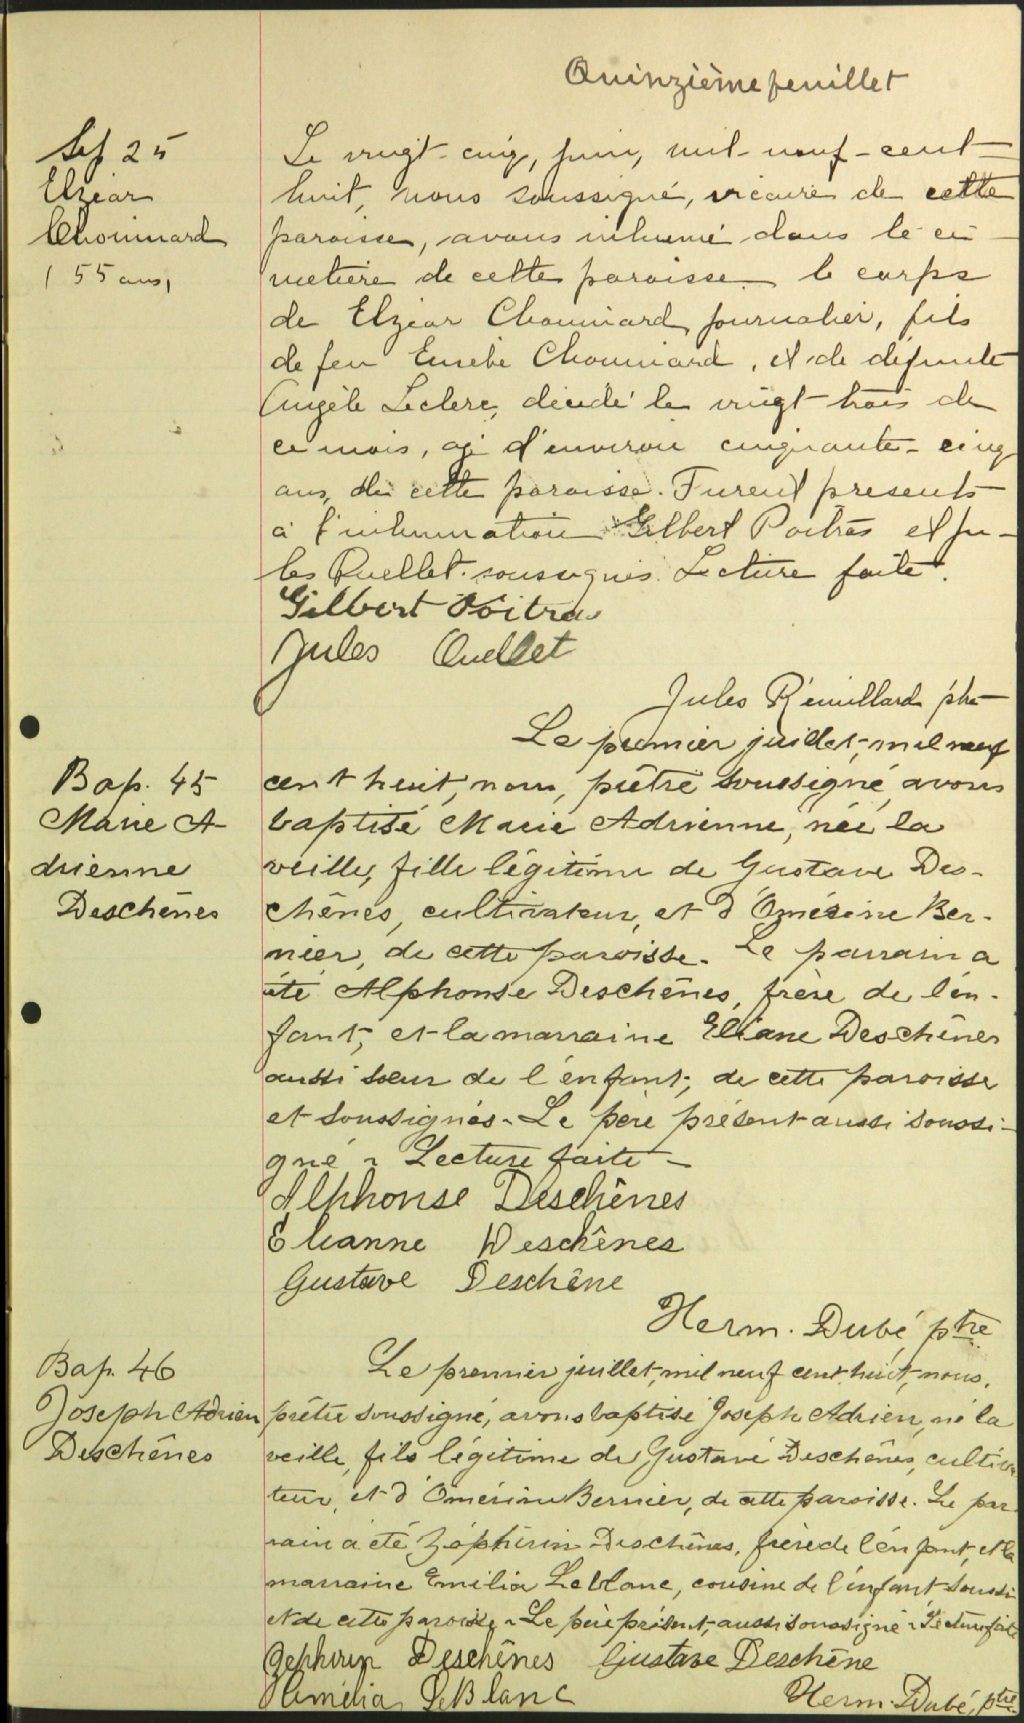 Quinzième feuillet
Sep 25
Elzéar
Chouinard
( 55 ans,
Le vingt-cinq, juin, mil-neuf-cent-
huit, nous soussigné, vicaire de cette
paroisse, avons inhumé dans le ci-
metière de cette paroisse le corps
de Elzéar Chouinard, journalier, fils
de feu Eusèbe Chouinard, et de défunte
Angèle Leclerc, décédé le vingt-trois de
ce mois, agé d'environ cinquante-cinq
ans, de cette paroisse. Furent présents
à l'inhumation Gilbert Poitras et Ju-
les Ouellet soussignés. Lecture faite.
Gilbert Poitras
Jules Ouellet
Jules Rémillard ptre
Bap. 45
Marie A-
drienne
Deschênes
Le premier juillet, mil neuf
cent huit, nous, prêtre soussigné, avons
baptisé Marie Adrienne, née la
veille, fille légitime de Gustave Des-
chênes, cultivateur, et d'Omésine Ber-
nier, de cette paroisse. Le parrain a
été Alphonse Deschênes, frère de l'en-
fant, et la marraine Eliane Deschênes
aussi soeur de l'enfant, de cette paroisse
et soussignés. Le père présent aussi soussi-
gné. Lecture faite -
Alphonse Deschênes
Elianne Deschênes
Gustave Deschêne
Herm. Dubé, ptre
Bap. 46
Joseph Adrien
Deschênes
Le premier juillet, mil neuf cent huit, nous,
prêtre soussigné, avons baptisé Joseph Adrien, né la
veille, fils légitime de Gustave Deschênes, cultiva
teur, et d'Omésine Bernier, de cette paroisse. Le par
rain a été Zéphirin Deschênes, frère de l'enfant, et la
marraine Emilia Leblanc, cousine de l'enfant soussi
et de cette paroisse. Le père présent, aussi soussigné. Lecture faite
Zephirin Deschênes Gustave Deschêne
Hémélia LeBlanc Herm. Dubé, ptre